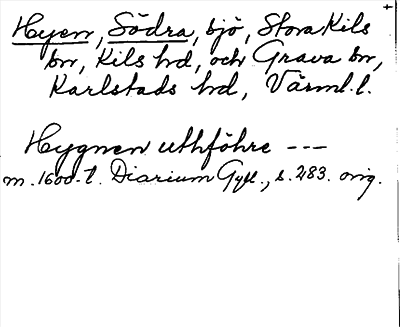 Hyen, Södra, sjö, Stora Kils
sn, Kils hd, och Grava sn,
Karlstads hd, Värml. l.
Hygnen uthföhre ---
m. 1600-t. Diarium Gyll., s. 283. orig.